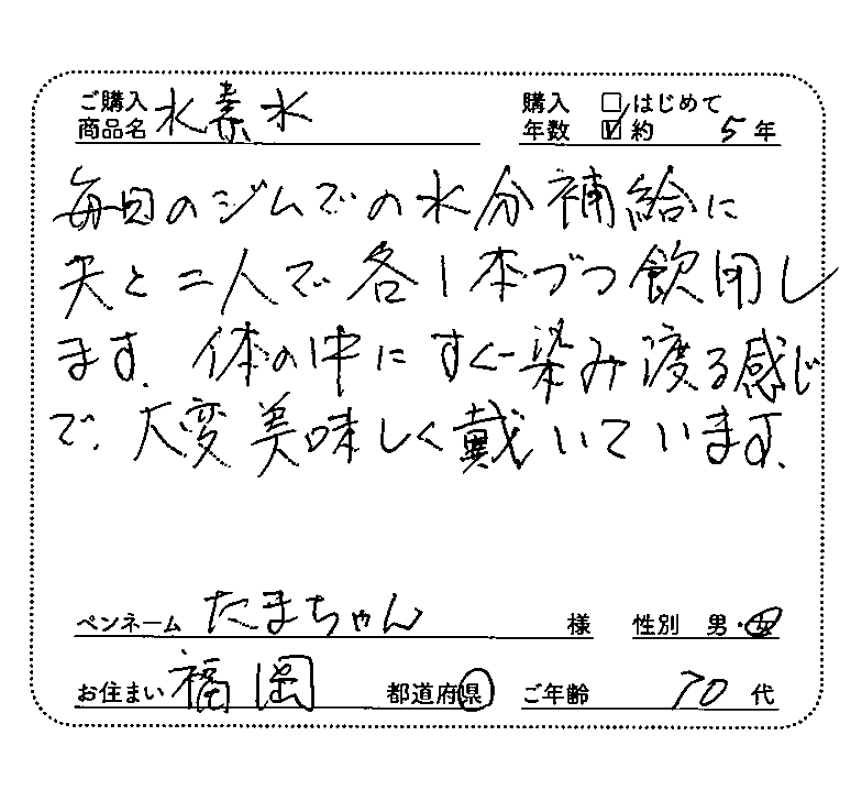 ご購入商品名 水素水
購入年数 □はじめて ☑約 5年
毎日のジムでの水分補給に
夫と二人で各1本づつ飲用し
ます。体の中にすぐ染み渡る感じ
で、大変美味しく戴いています。
ペンネーム たまちゃん 様 性別 男・女
お住まい 福岡 都道府県 ご年齢 70代